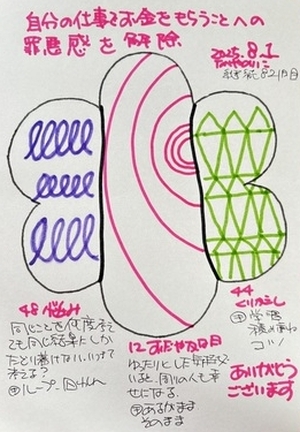 自分の仕事でお金をもらうことへの
罪悪感を解除
2025.8.1
48 悩み
同じことを何度考え
ても同じ結果にしか
たどり着けない。いつまで
考える?
12 おだやかな日
ゆったりとした気持ちで
いると、周りの人も幸
せになる。
あるがまま
そのまま
44
くりかえし
学習
積み重ね
コツコツ
ありがとう
ございます